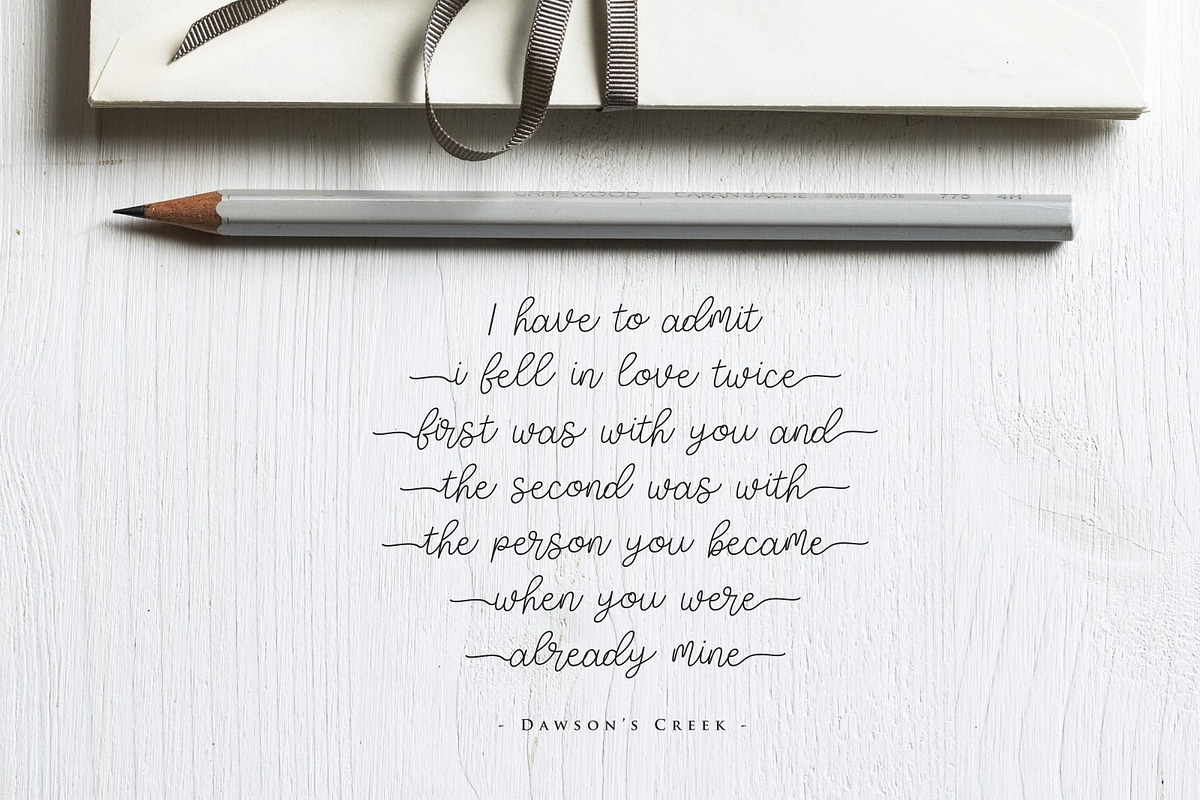 CARAN d'ACHE SWISS MADE 775 4H
I have to admit
i fell in love twice
first was with you and
the second was with
the person you became
when you were
already mine
- DAWSON'S CREEK -